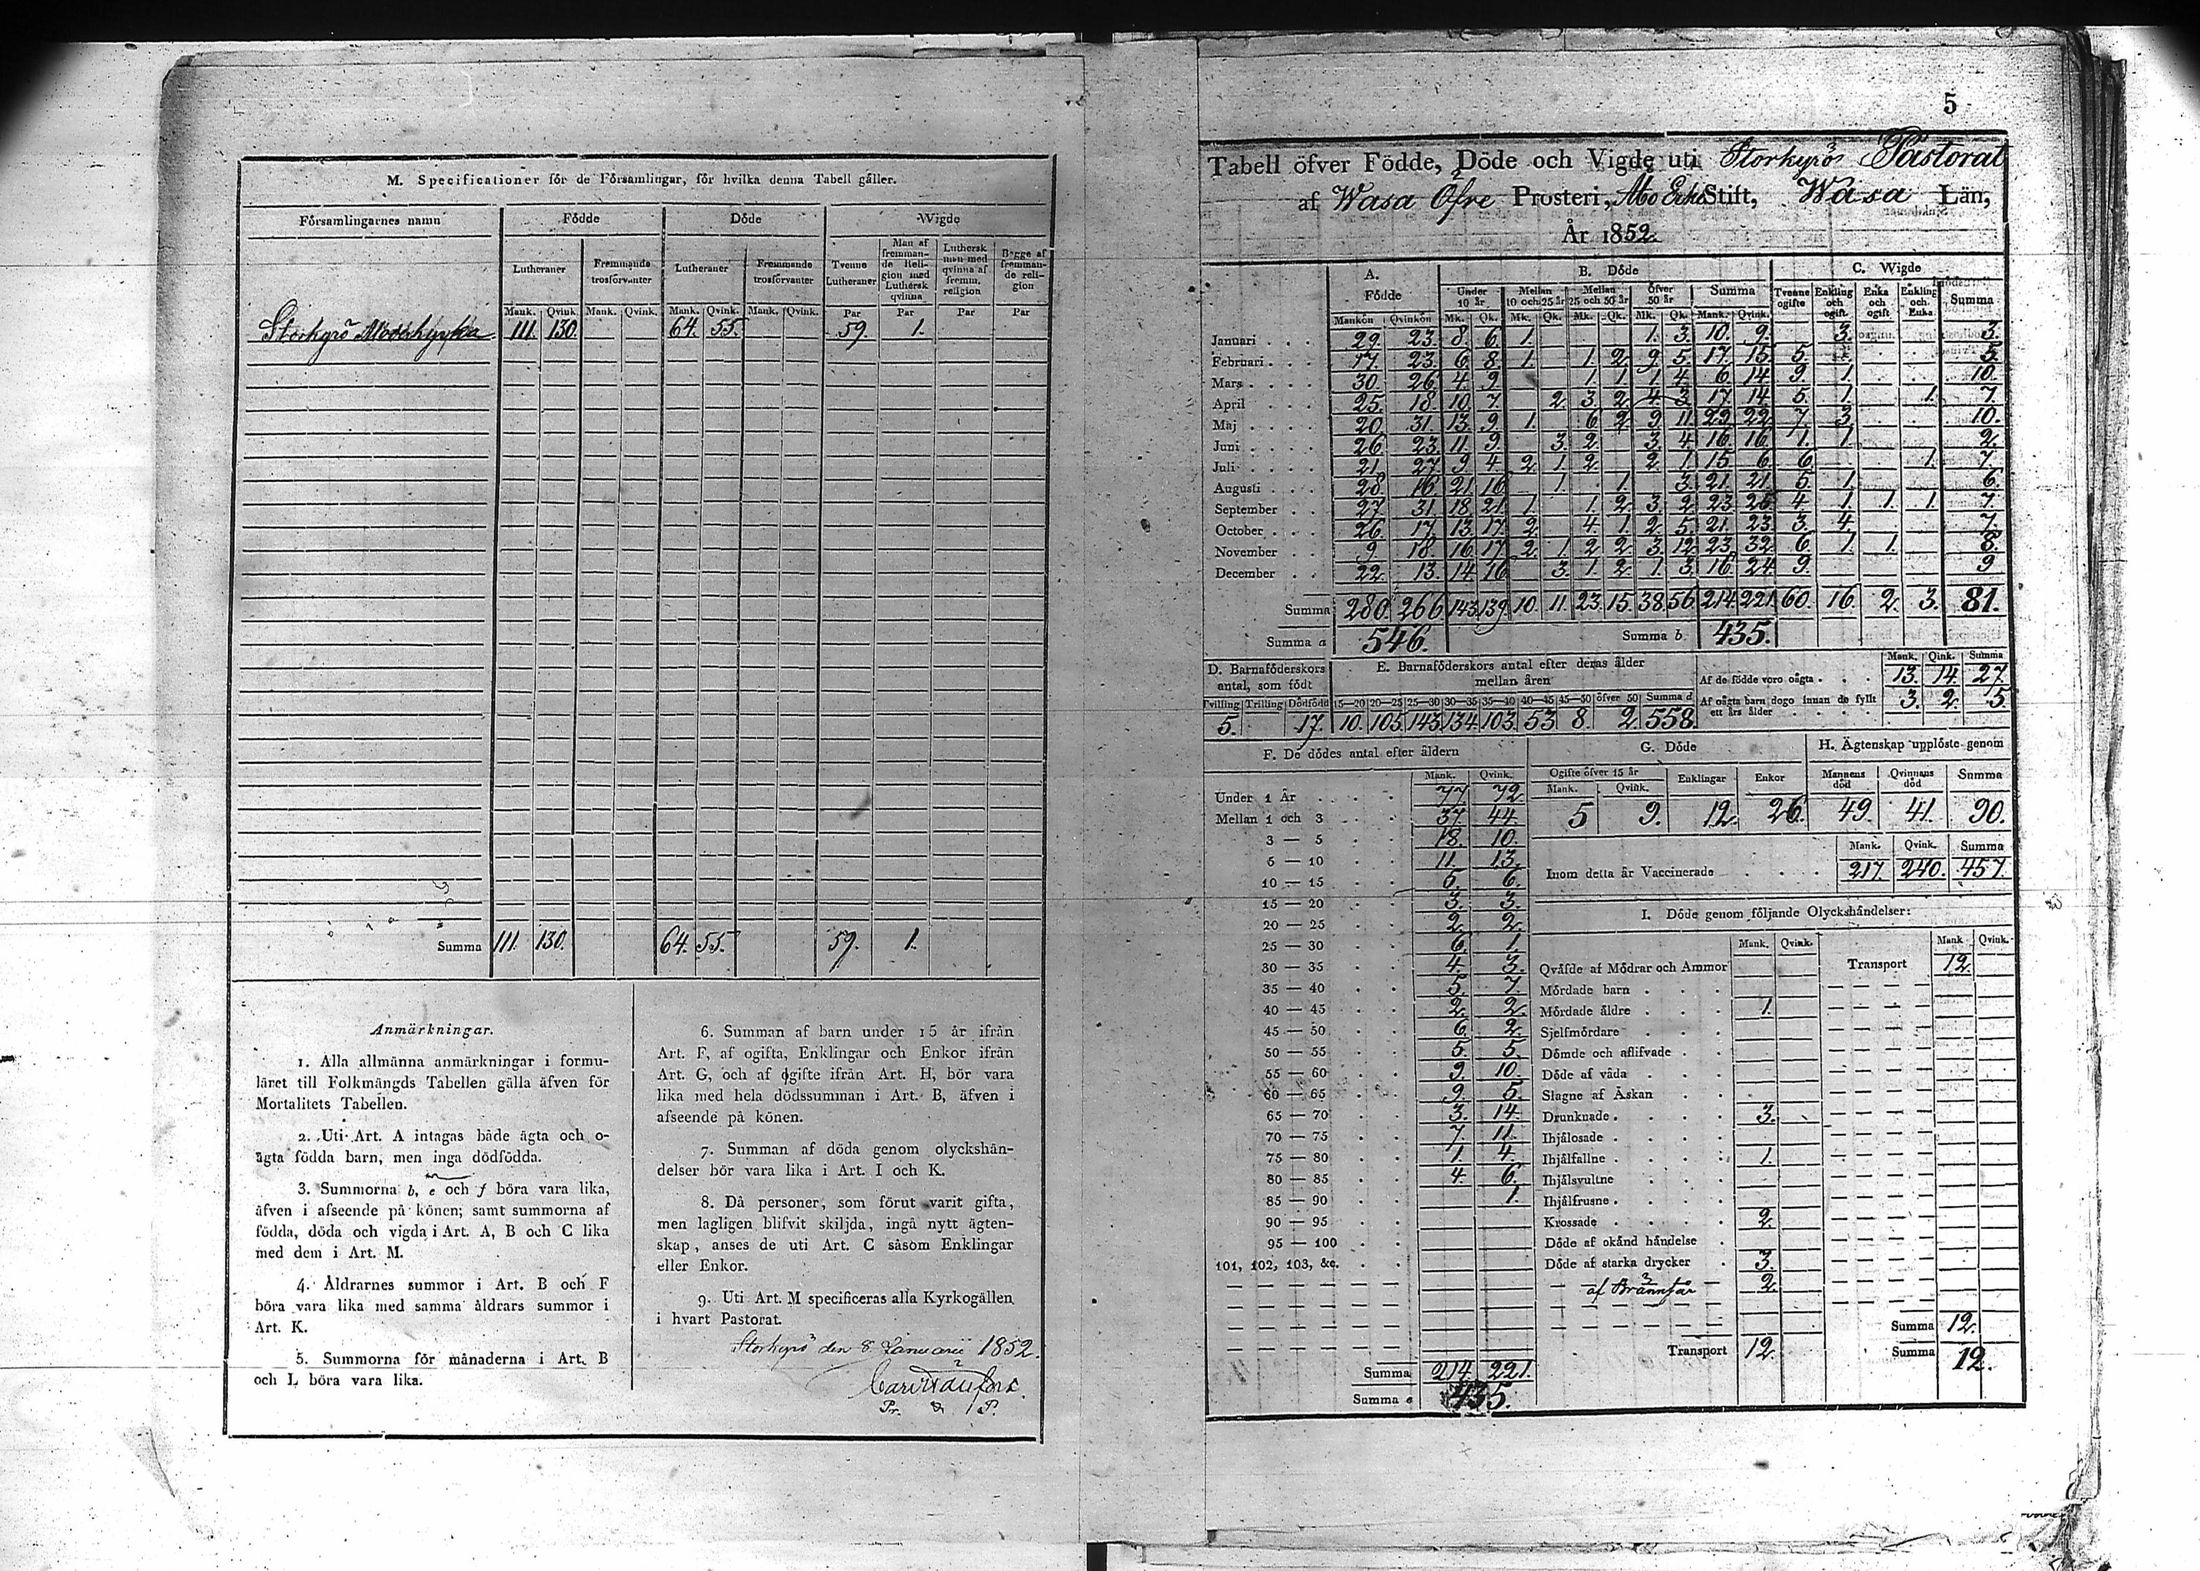 M. Specificationer för de Församlingar, för hvilka denna Tabell gäller.
Församlingarnes namn Födde Döde Wigde
Lutheraner Fremmande trosförvanter Lutheraner Fremmande trosförvanter Tvenne Lutheraner Man af fremmande Religion med Luthersk qvinna Luthersk man med qvinna af fremm. religion Begge af fremmande religion
Mank. Qvink. Mank. Qvink. Mank. Qvink. Mank. Qvink. Par Par Par Par
Storkyrö Moderkyrka 111. 130. 64. 55. 59. 1.
Summa 111. 130. 64. 55. 59. 1.
Anmärkningar.
1. Alla allmänna anmärkningar i formu-
läret till Folkmängds Tabellen gälla äfven för
Mortalitets Tabellen.
2. Uti Art. A intagas både ägta och o-
ägta födda barn, men inga dödfödda.
3. Summorna b, e och f böra vara lika,
äfven i afseende på könen; samt summorna af
födda, döda och vigda i Art. A, B och C lika
med dem i Art. M.
4. Åldrarnes summor i Art. B och F
böra vara lika med samma åldrars summor i
Art. K.
5. Summorna för månaderna i Art. B
och L böra vara lika.
6. Summan af barn under 15 år ifrån
Art. F, af ogifta, Enklingar och Enkor ifrån
Art. G, och af ogifte ifrån Art. H, bör vara
lika med hela dödssumman i Art. B, äfven i
afseende på könen.
7. Summan af döda genom olyckshän-
delser bör vara lika i Art. I och K.
8. Då personer, som förut varit gifta,
men lagligen blifvit skiljda, ingå nytt ägten-
skap, anses de uti Art. C såsom Enklingar
eller Enkor.
9. Uti Art. M specificeras alla Kyrkogällen
i hvart Pastorat.
Storkyrö den 8 Januarii 1852.
5
Tabell öfver Födde, Döde och Vigde uti Storkyrö Pastorat
af Wasa Öfre Prosteri, Åbo Erke Stift, Wasa Län,
År 1852.
A. Födde B. Döde C. Wigde
Under 10 år Mellan 10 och 25 år Mellan 25 och 50 år Öfver 50 år Summa Tvenne ogifte Enkling och ogift. Enka och ogift Enkling och Enka Summa
Mankön Qvinkön Mk. Qk. Mk. Qk. Mk. Qk. Mk. Qk. Mank. Qvink.
Januari 29. 23. 8. 6. 1. 1. 3. 10. 9. 3. 3.
Februari 17. 23. 6. 8. 1. 1. 2. 9. 5. 17. 15. 5. 5.
Mars 30. 26. 4. 9. 1. 1. 1. 4. 6. 14. 9. 1. 10.
April 25. 18. 10. 7. 2. 3. 2. 4. 3. 17. 14. 5. 1. 1. 7.
Maj 20. 31. 13. 9. 1. 6. 2. 9. 11. 23. 22. 7. 3. 10.
Juni 26. 23. 11. 9. 3. 2. 3. 4. 16. 16. 1. 1. 2.
Juli 21. 27. 9. 4. 2. 1. 2. 2. 1. 15. 6. 6. 1. 7.
Augusti 28. 16. 21. 16. 1. 1. 3. 21. 21. 5. 1. 6.
September 27. 31. 18. 21. 1. 1. 2. 3. 2. 23. 25. 4. 1. 1. 1. 7.
October 26. 17. 13. 17. 2. 4. 1. 2. 5. 21. 23. 3. 4. 7.
November 9. 18. 16. 17. 2. 1. 2. 2. 3. 12. 23. 32. 6. 1. 1. 8.
December 22. 13. 14. 16. 3. 1. 2. 1. 3. 16. 24. 9. 9
Summa 280. 266. 143. 139. 10. 11. 23. 15. 38. 56. 214. 221. 60. 16. 2. 3. 81.
Summa a 546. Summa b 435.
D. Barnaföderskors antal, som födt
Tvilling Trilling Dödfödd
5. 17.
E. Barnaföderskors antal efter deras ålder mellan åren
15—20 20—25 25—30 30—35 35—40 40—45 45—50 öfver 50 Summa d
10. 105. 143. 134. 103. 53 8. 2. 558.
Mank. Qink. Summa
Af de födde voro oägta 13. 14. 27.
Af oägta barn dogo innan de fyllt ett års ålder 3. 2. 5.
F. De dödes antal efter åldern
Mank. Qvink.
Under 1 År 77. 72.
Mellan 1 och 3 37. 44.
3 — 5 18. 10.
5 — 10 11. 13.
10 — 15 5. 6.
15 — 20 3. 3.
20 — 25 2. 2.
25 — 30 6. 1
30 — 35 4. 3.
35 — 40 5. 7.
40 — 45 2. 2.
45 — 50 6. 2.
50 — 55 5. 5.
55 — 60 9. 10.
60 — 65 9. 5.
65 — 70 3. 14.
70 — 75 7. 11.
75 — 80 1. 4.
80 — 85 4. 6.
85 — 90 1.
90 — 95
95 — 100
101, 102, 103, &c.
Summa 214 221.
Summa e 435.
G. Döde
Ogifte öfver 15 år Enklingar Enkor
Mank. Qvink.
5 9. 12. 26.
H. Ägtenskap upplöste genom
Mannens död Qvinnans död Summa
49. 41. 90.
Mank. Qvink. Summa
Inom detta år Vaccinerade 217. 240. 457.
I. Döde genom följande Olyckshändelser:
Mank. Qvink. Mank Qvink.
Qväfde af Mödrar och Ammor Transport 12.
Mördade barn
Mördade äldre 1.
Sjelfmördare
Dömde och aflifvade
Döde af våda
Slagne af Åskan
Drunknade 3.
Ihjälosade
Ihjälfallne 1.
Ihjälsvultne
Ihjälfrusne
Krossade 2.
Döde af okänd händelse
Döde af starka drycker 3.
— af Brännsår 2.
Summa 12.
Transport 12. Summa 12.